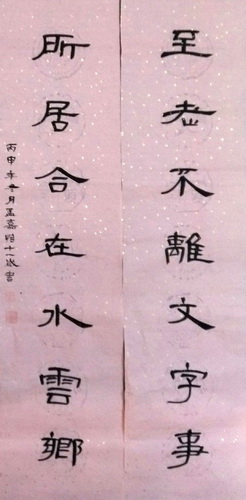 至老不離文字事
所居合在水雲鄉
丙申年十月孟嘉十一歲書